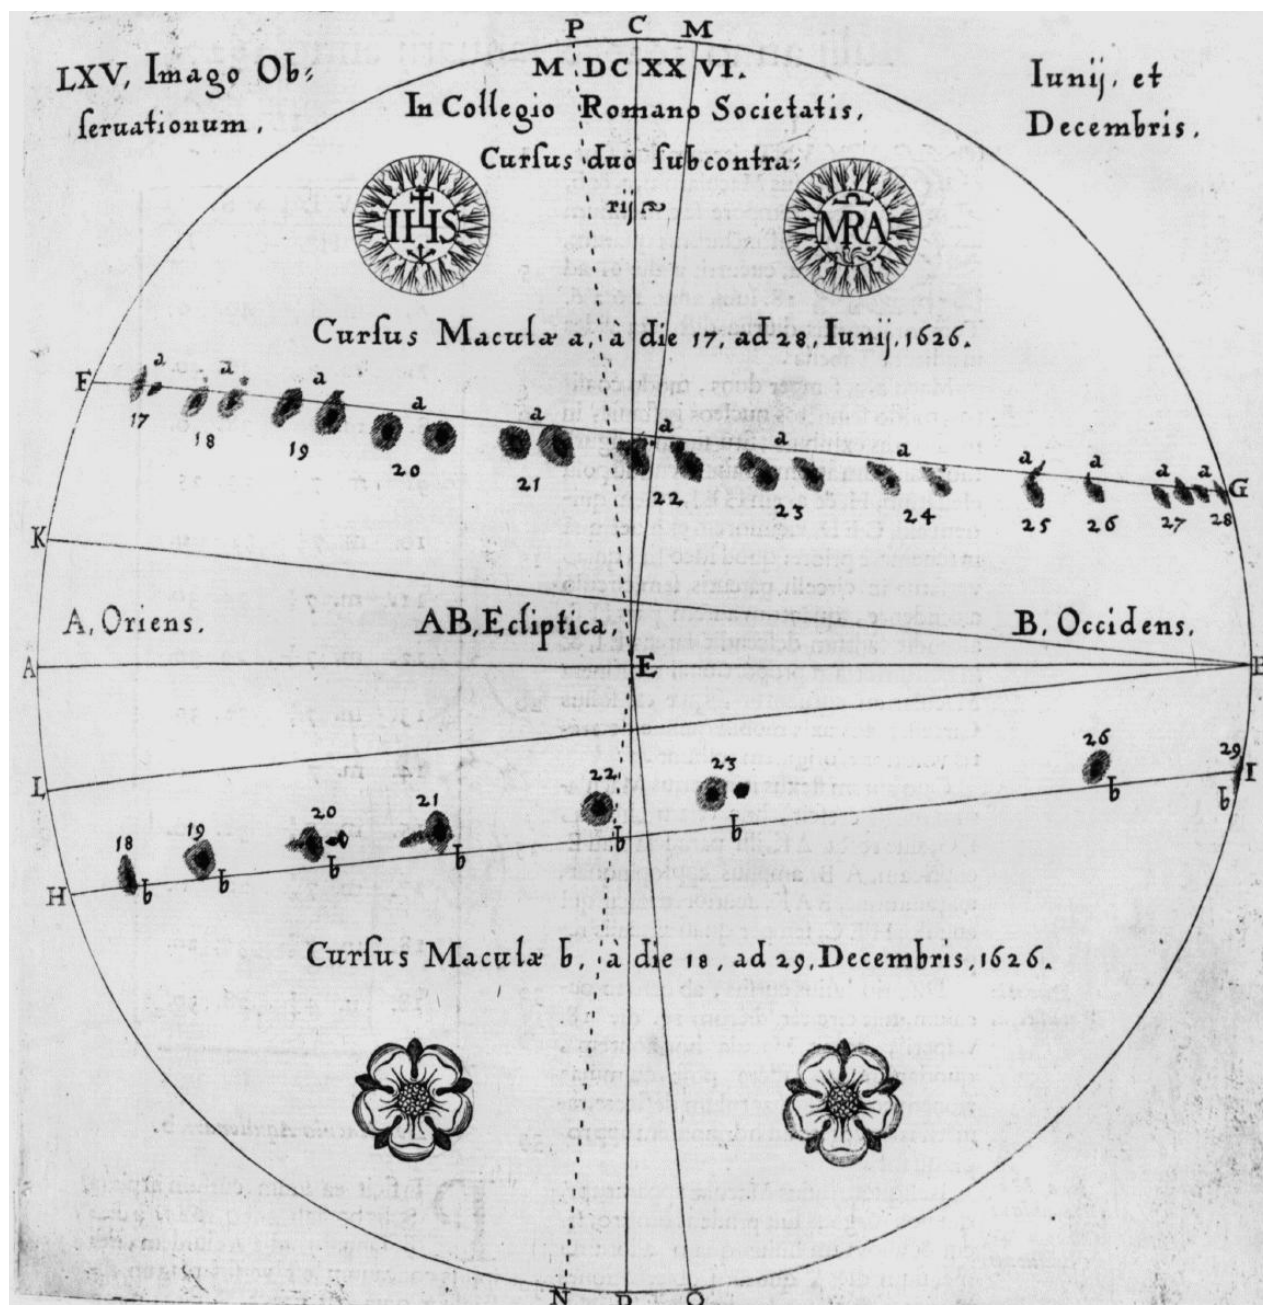 P C M
LXV, Imago Ob⸗
ſeruationum.
M DC XX VI.
In Collegio Romano Societatis,
Curſus duo ſubcontra⸗
rij
Iunij, et
Decembris.
IHS
MRA
Curſus Maculæ a, à die 17, ad 28, Iunij, 1626.
F a a a a a a a a a a a a G
17 18 19 20 21 22 23 24 25 26 27 28
K
A, Oriens. AB, Ecliptica, B, Occidens.
A E B
L
18 19 20 21 22 23 26 29 I
H b b b b b b b b
Curſus Maculæ b, à die 18, ad 29, Decembris, 1626.
N D O